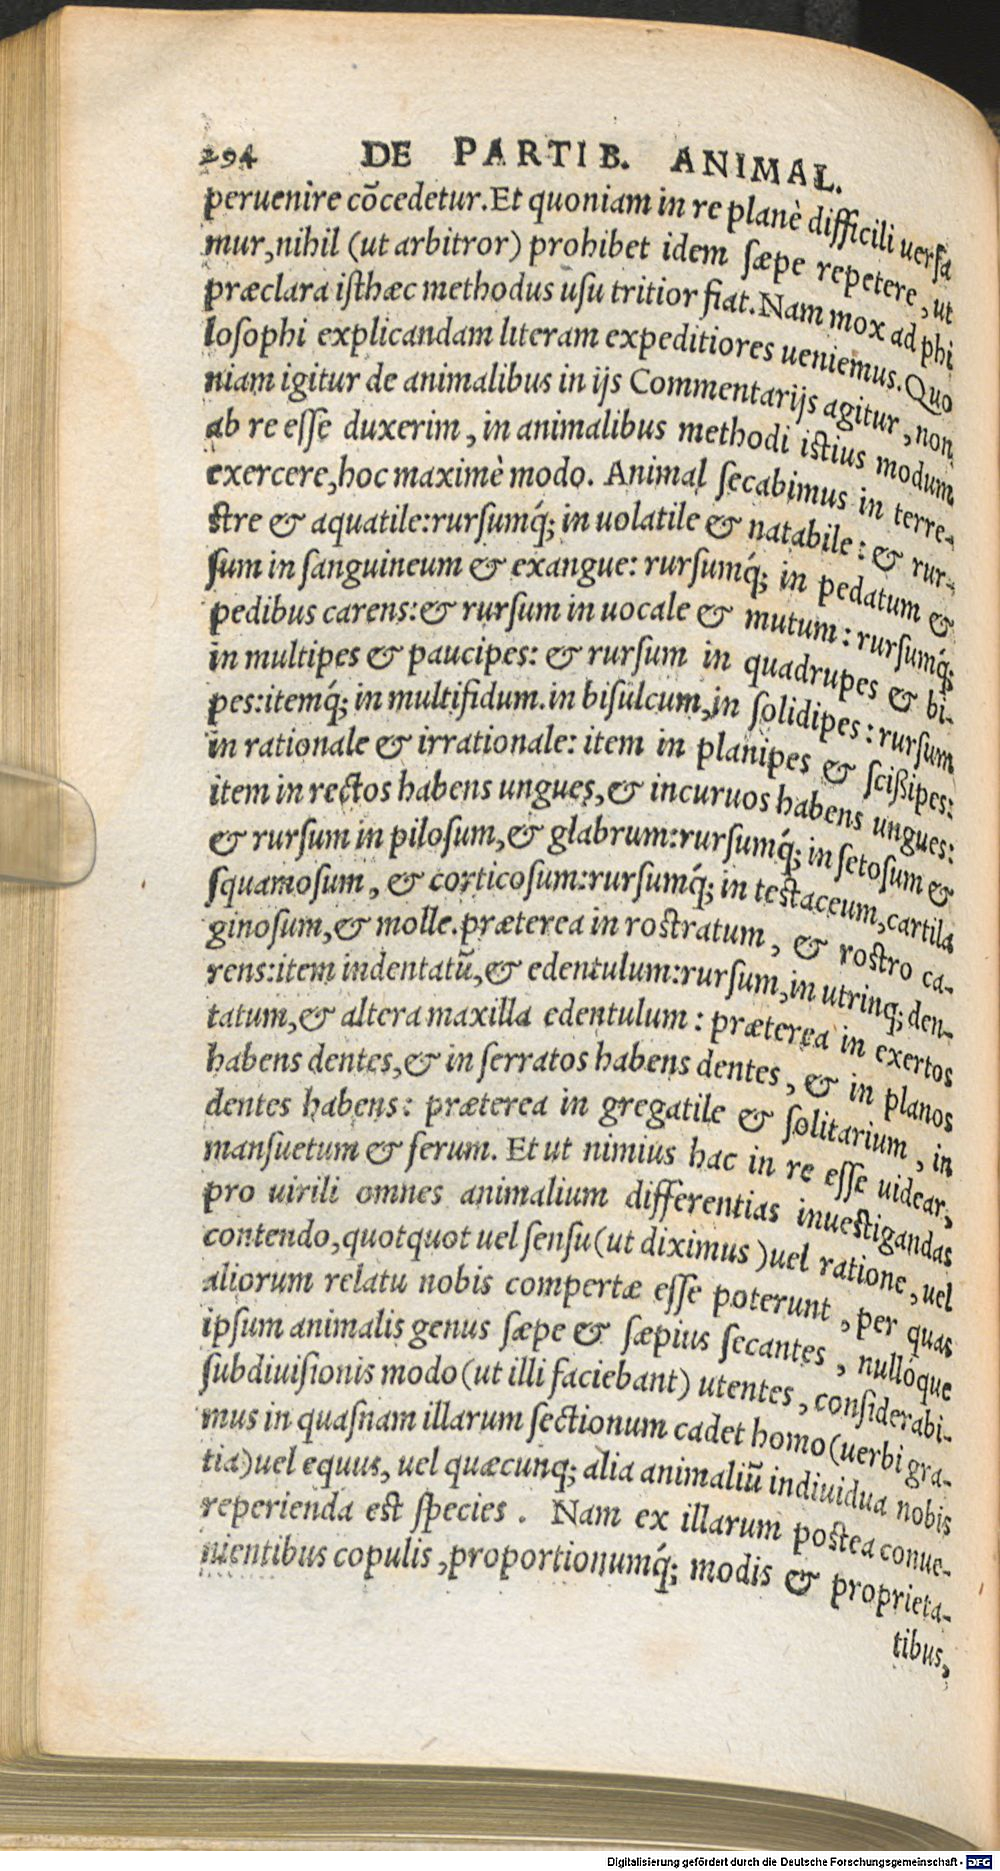 294 DE PARTIB. ANIMAL.
peruenire cõcedetur. Et quoniam in re planè difficili uersa
mur, nihil (ut arbitror) prohibet idem sæpe repetere, ut
præclara isthæc methodus usu tritior fiat. Nam mox ad phi
losophi explicandam literam expeditiores ueniemus. Quo
niam igitur de animalibus in ijs Commentarijs agitur, non
ab re esse duxerim, in animalibus methodi istius modum
exercere, hoc maximè modo. Animal secabimus in terre-
stre & aquatile: rursumq́; in uolatile & natabile: & rur-
sum in sanguineum & exangue: rursumq́; in pedatum &
pedibus carens: & rursum in uocale & mutum: rursumq́;
in multipes & paucipes: & rursum in quadrupes & bi-
pes: itemq́; in multifidum. in bisulcum, in solidipes: rursum
in rationale & irrationale: item in planipes & scißipes:
item in rectos habens ungues, & incuruos habens ungues:
& rursum in pilosum, & glabrum: rursumq́; in setosum &
squamosum, & corticosum: rursumq́; in testaceum, cartila
ginosum, & molle. præterea in rostratum, & rostro ca-
rens: item in dentatũ, & edentulum: rursum, in utrinq; den-
tatum, & altera maxilla edentulum: præterea in exertos
habens dentes, & in serratos habens dentes, & in planos
dentes habens: præterea in gregatile & solitarium, in
mansuetum & ferum. Et ut nimius hac in re esse uidear,
pro uirili omnes animalium differentias inuestigandas
contendo, quotquot uel sensu (ut diximus) uel ratione, uel
aliorum relatu nobis compertæ esse poterunt, per quas
ipsum animalis genus sæpe & sæpius secantes, nullóque
subdiuisionis modo (ut illi faciebant) utentes, considerabi-
mus in quasnam illarum sectionum cadet homo (uerbi gra-
tia) uel equus, uel quæcunq; alia animaliũ indiuidua nobis
reperienda est species. Nam ex illarum postea conue-
nientibus copulis, proportionumq́; modis & proprieta-
tibus,
Digitalisierung gefördert durch die Deutsche Forschungsgemeinschaft - DFG